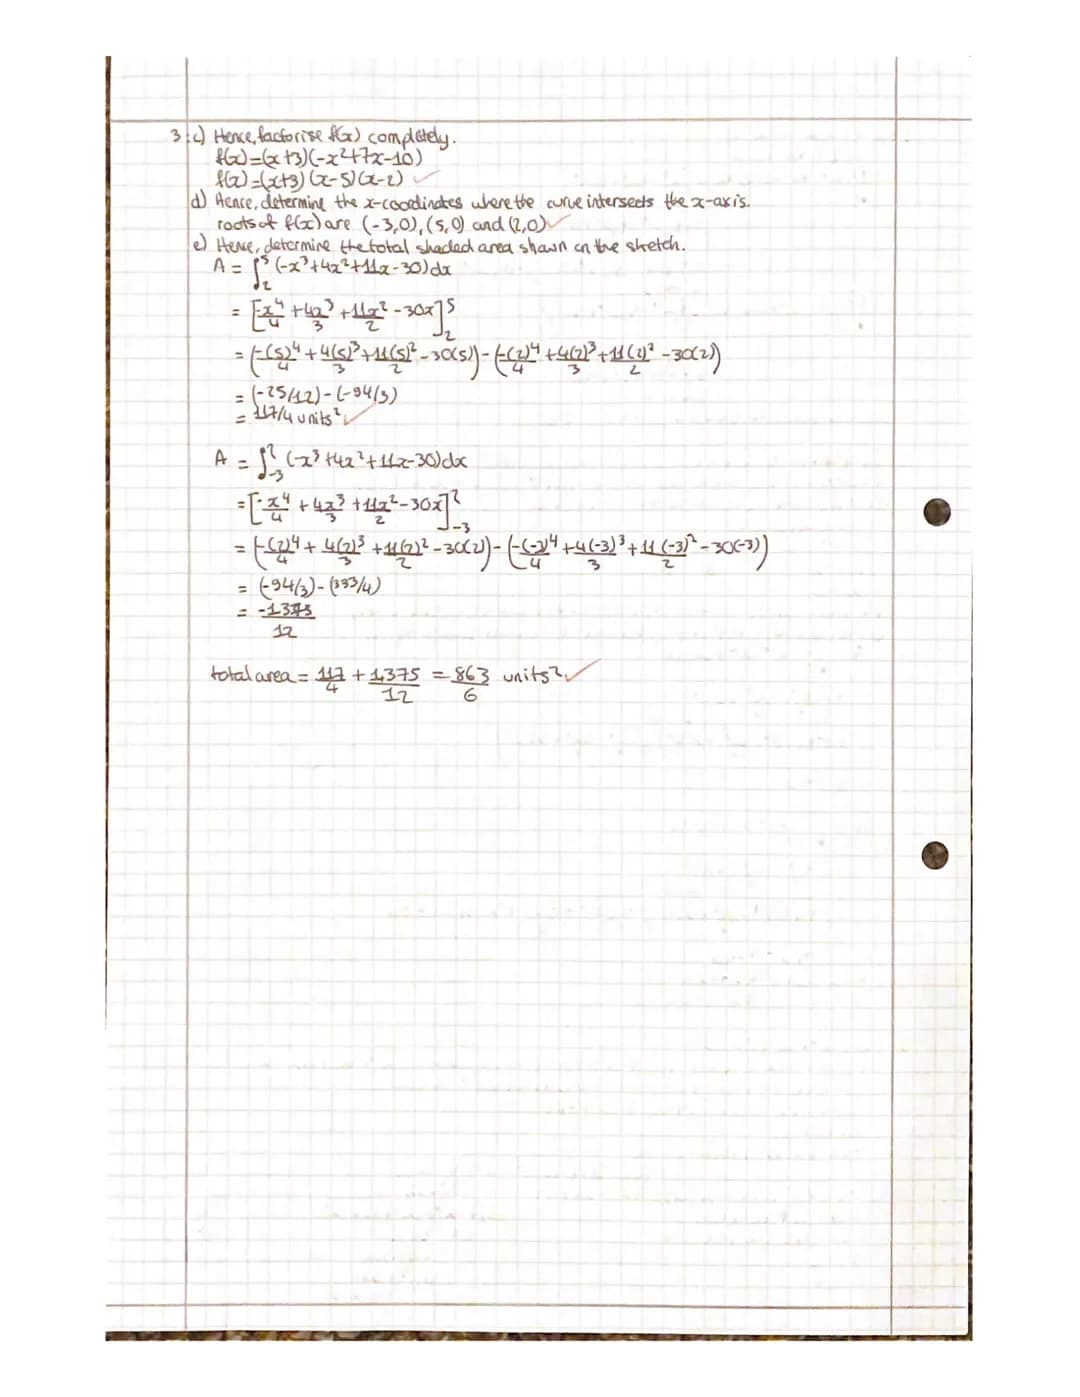 3. c) Hence, factorise f(x) completely.
f(x)=(x+3)(-x²+7x-10)
f(x)=(x+3)(x-5)(x-2) ✓
d) Hence, determine the x-coordinates where the curve intersects the x-axis.
roots of f(x) are (-3,0), (5,0) and (2,0) ✓
e) Hence, determine the total shaded area shown on the sketch.
A = ∫₂⁵ (-x³+4x²+11x-30)dx
= [-x⁴/4 + 4x³/3 + 11x²/2 - 30x]₂⁵
= (-(5)⁴/4 + 4(5)³/3 + 11(5)²/2 - 30(5)) - (-(2)⁴/4 + 4(2)³/3 + 11(2)²/2 - 30(2))
= (-25/12) - (-94/3)
= 117/4 units² ✓
A = ∫₋₃² (-x³+4x²+11x-30)dx
= [-x⁴/4 + 4x³/3 + 11x²/2 - 30x]₋₃²
= (-(2)⁴/4 + 4(2)³/3 + 11(2)²/2 - 30(2)) - (-(-3)⁴/4 + 4(-3)³/3 + 11(-3)²/2 - 30(-3))
= (-94/3) - (333/4)
= -1375/12
total area = 117/4 + 1375/12 = 863/6 units² ✓